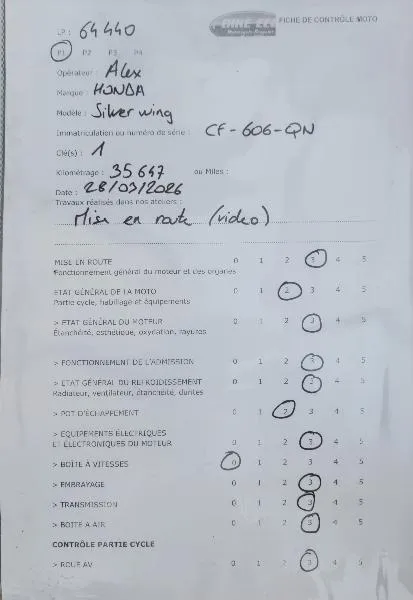 LP : 64440
BIKE ECO
Motorcycle Recycler
FICHE DE CONTRÔLE MOTO
P1 P2 P3 P4
Opérateur : Alex
Marque : HONDA
Modèle : Silver wing
Immatriculation ou numéro de série : CF-606-QN
Clé(s) : 1
Kilométrage : 35647 ou Miles :
Date : 28/07/2026
Travaux réalisés dans nos ateliers :
Mise en route (video)
MISE EN ROUTE 0 1 2 3 4 5
Fonctionnement général du moteur et des organes
ETAT GÉNÉRAL DE LA MOTO 0 1 2 3 4 5
Partie cycle, habillage et équipements
> ETAT GÉNÉRAL DU MOTEUR 0 1 2 3 4 5
Étanchéité, esthétique, oxydation, rayures
> FONCTIONNEMENT DE L'ADMISSION 0 1 2 3 4 5
> ETAT GÉNÉRAL DU REFROIDISSEMENT 0 1 2 3 4 5
Radiateur, ventilateur, étanchéité, durites
> POT D'ÉCHAPPEMENT 0 1 2 3 4 5
> EQUIPEMENTS ÉLECTRIQUES
ET ÉLECTRONIQUES DU MOTEUR 0 1 2 3 4 5
> BOÎTE À VITESSES 0 1 2 3 4 5
> EMBRAYAGE 0 1 2 3 4 5
> TRANSMISSION 0 1 2 3 4 5
> BOITE A AIR 0 1 2 3 4 5
CONTRÔLE PARTIE CYCLE
> ROUE AV 0 1 2 3 4 5